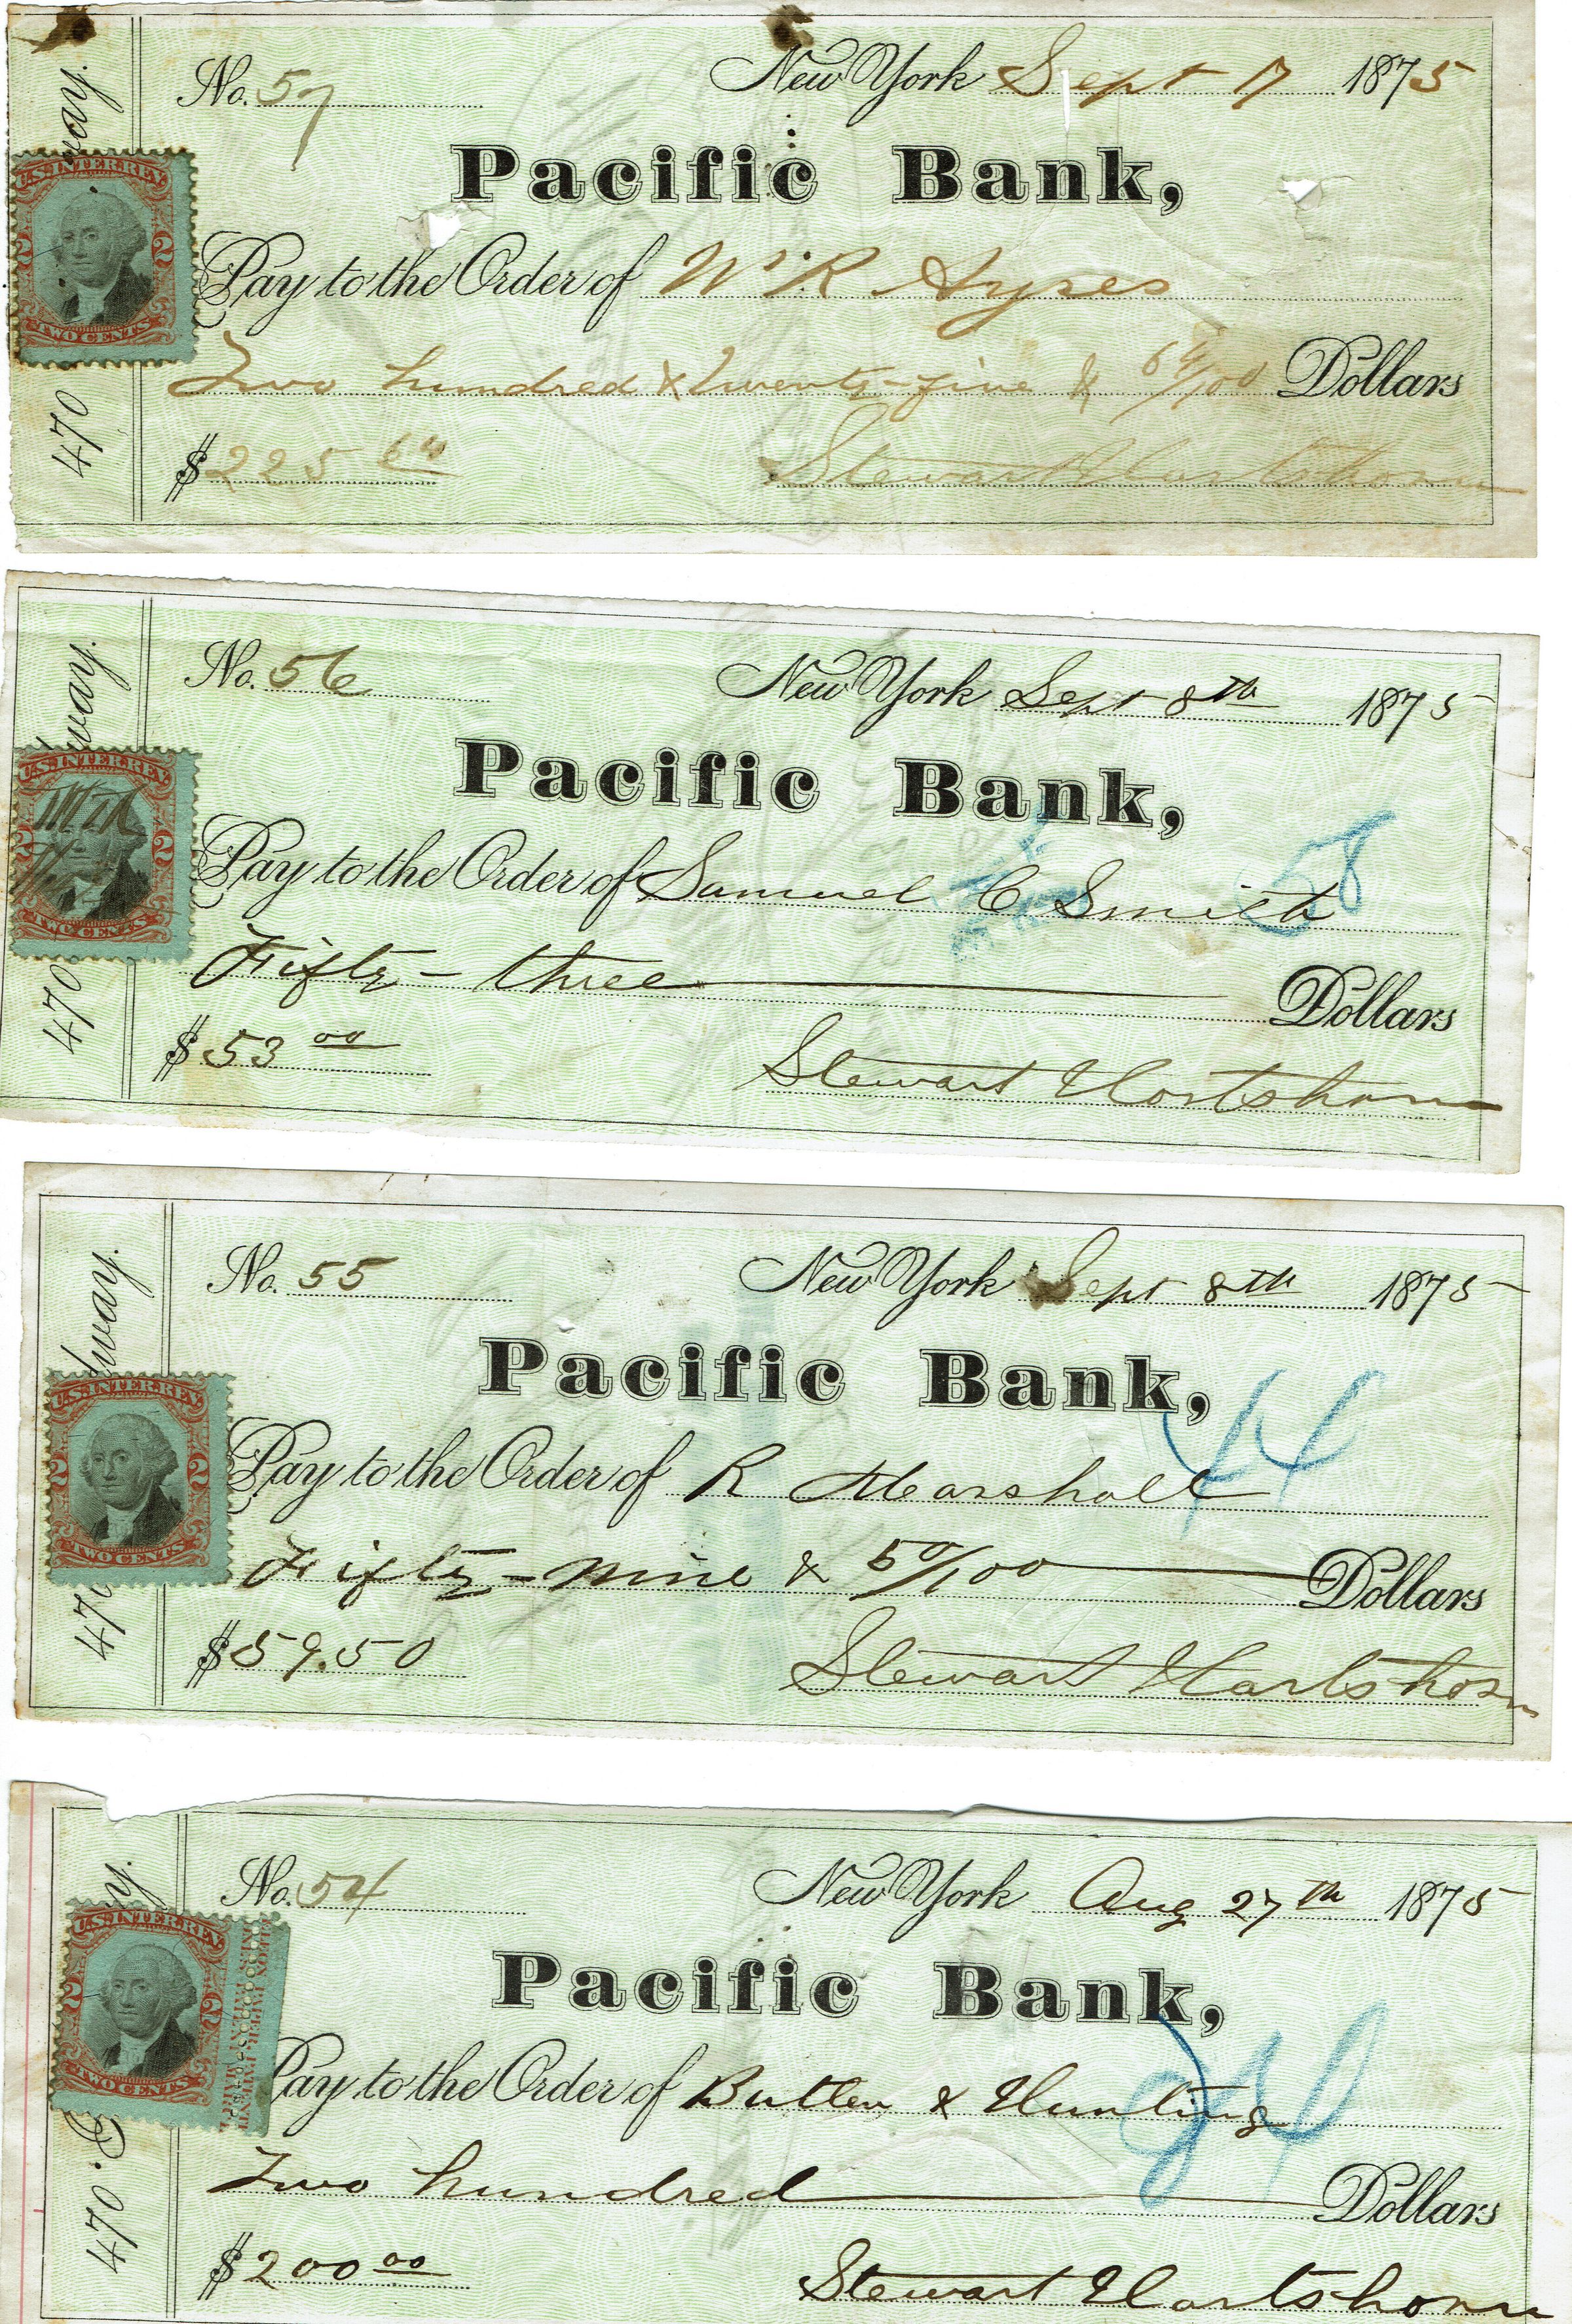 No. 57 New York Sept 17 1875
Pacific Bank,
U.S. INTER. REV.
2 2
TWO CENTS
Pay to the Order of W. R. Ayres
Two hundred & twenty-five & 64/100 Dollars
$225 64
Stewart Hartshorn
470 way.
No. 56 New York Sept 8th 1875
Pacific Bank,
U.S. INTER. REV.
2 2
TWO CENTS
58
Pay to the Order of Samuel C Smith
Fifty-three Dollars
$53 00
Stewart Hartshorn
470 dway.
No. 55 New York Sept 8th 1875
Pacific Bank,
U.S. INTER. REV.
2 2
TWO CENTS
44
Pay to the Order of R Marshall
Fifty-nine & 50/100 Dollars
$59.50
Stewart Hartshorn
470 dway.
No. 54 New York Aug 27th 1875
Pacific Bank,
U.S. INTER. REV.
2 2
TWO CENTS
Pay to the Order of Butler & Hunting
Two hundred Dollars
$200 00
Stewart Hartshorn
470 B y.